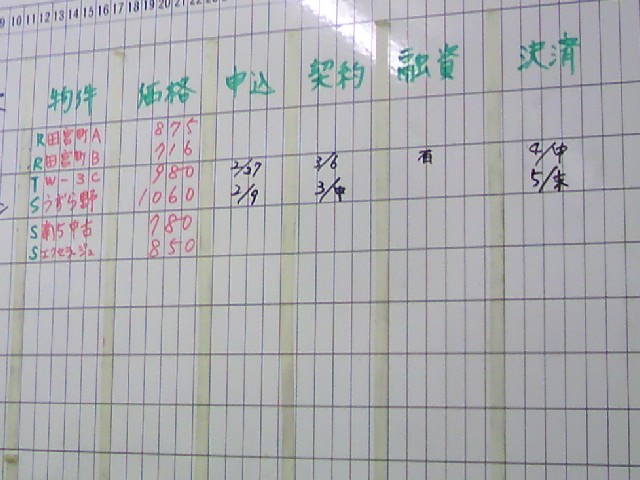 9 10 11 12 13 14 15 16 17 18 19 20 21 22
物件 価格 申込 契約 融資 決済
R 田宮町A 875
R 田宮町B 716
T W-3C 980 2/27 3/6 有 4/中
S うずら野 1060 2/9 3/中 5/末
S 中古 780
S 850